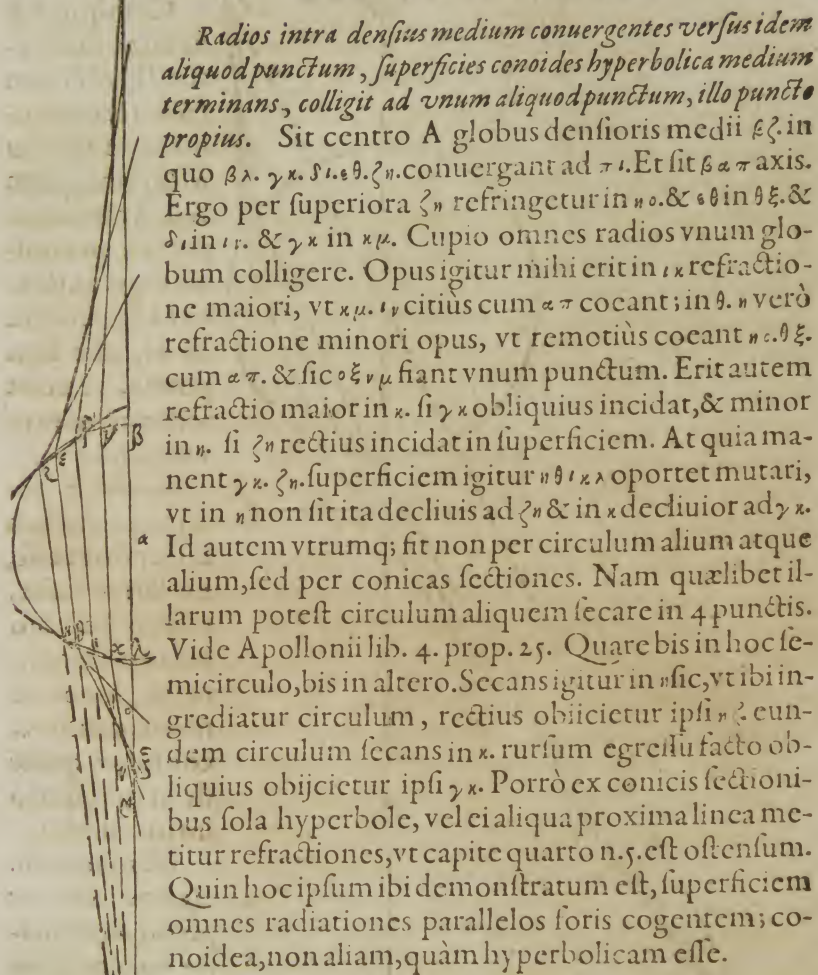 Radios intra densius medium conuergentes versus idem
aliquod punctum, superficies conoides hyperbolica medium
terminans, colligit ad vnum aliquod punctum, illo puncto
propius. Sit centro A globus densioris medii βζ. in
quo βλ. γκ. δι. εθ. ζη. conuergant ad π ι. Et sit β α π axis.
Ergo per superiora ζη refringetur in ηο. & εθ in θξ. &
δι in ιν. & γκ in κμ. Cupio omnes radios vnum glo-
bum colligere. Opus igitur mihi erit in ικ refractio-
ne maiori, vt κμ. ιν citiùs cum απ coeant; in θ. η verò
refractione minori opus, vt remotiùs coeant ηο. θξ.
cum απ. & sic ο ξ ν μ fiant vnum punctum. Erit autem
refractio maior in κ. si γκ obliquius incidat, & minor
in η. si ζη rectius incidat in superficiem. At quia ma-
nent γκ. ζη. superficiem igitur ηθικλ oportet mutari,
vt in η non sit ita decliuis ad ζη & in κ decliuior ad γκ.
Id autem vtrumq; fit non per circulum alium atque
alium, sed per conicas sectiones. Nam quælibet il-
larum potest circulum aliquem secare in 4 punctis.
Vide Apollonii lib. 4. prop. 25. Quare bis in hoc se-
micirculo, bis in altero. Secans igitur in η sic, vt ibi in-
grediatur circulum, rectius obiicietur ipsi ηζ. eun-
dem circulum secans in κ. rursum egressu facto ob-
liquius obijcietur ipsi γκ. Porrò ex conicis sectioni-
bus sola hyperbole, vel ei aliqua proxima linea me-
titur refractiones, vt capite quarto n.5. est ostensum.
Quin hoc ipsum ibi demonstratum est, superficiem
omnes radiationes parallelos foris cogentem; co-
noidea, non aliam, quàm hyperbolicam esse.
β
α
λ